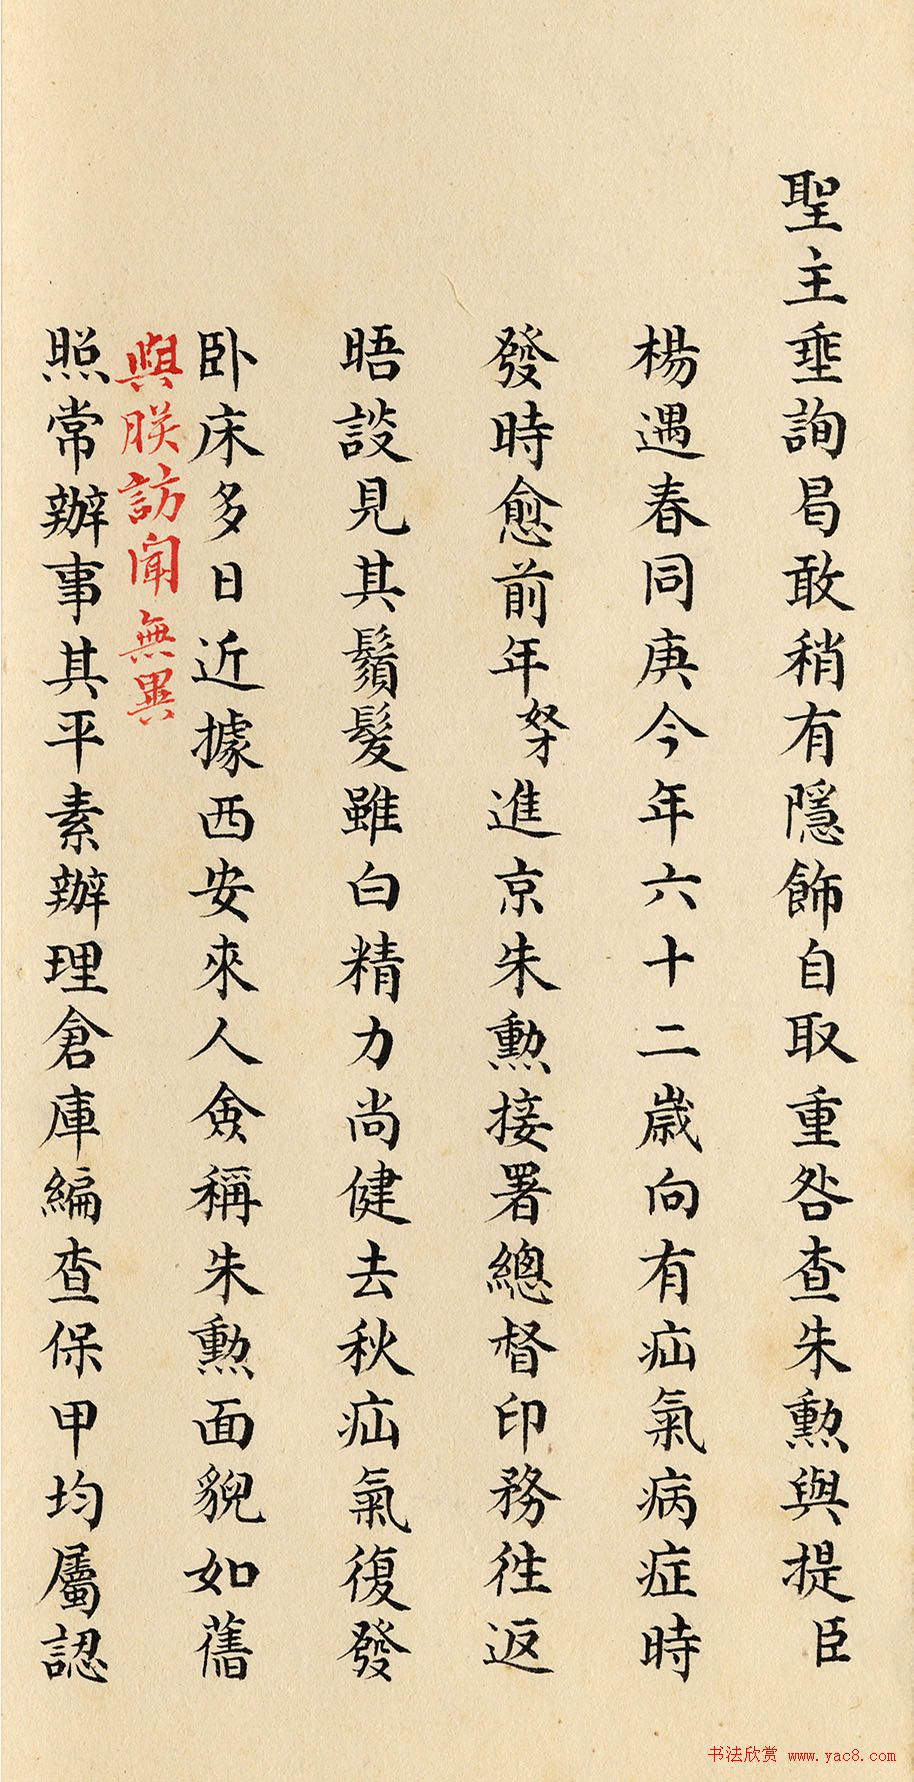 聖主垂詢曷敢稍有隱飾自取重咎查朱勲與提臣
楊遇春同庚今年六十二歲向有疝氣病症時
發時愈前年奴才進京朱勲接署總督印務徃返
晤談見其鬚髮雖白精力尚健去秋疝氣復發
卧床多日近據西安來人僉稱朱勲面貌如舊
與朕訪聞無異
照常辦事其平素辦理倉庫編查保甲均屬認
书法欣赏 www.yac8.com